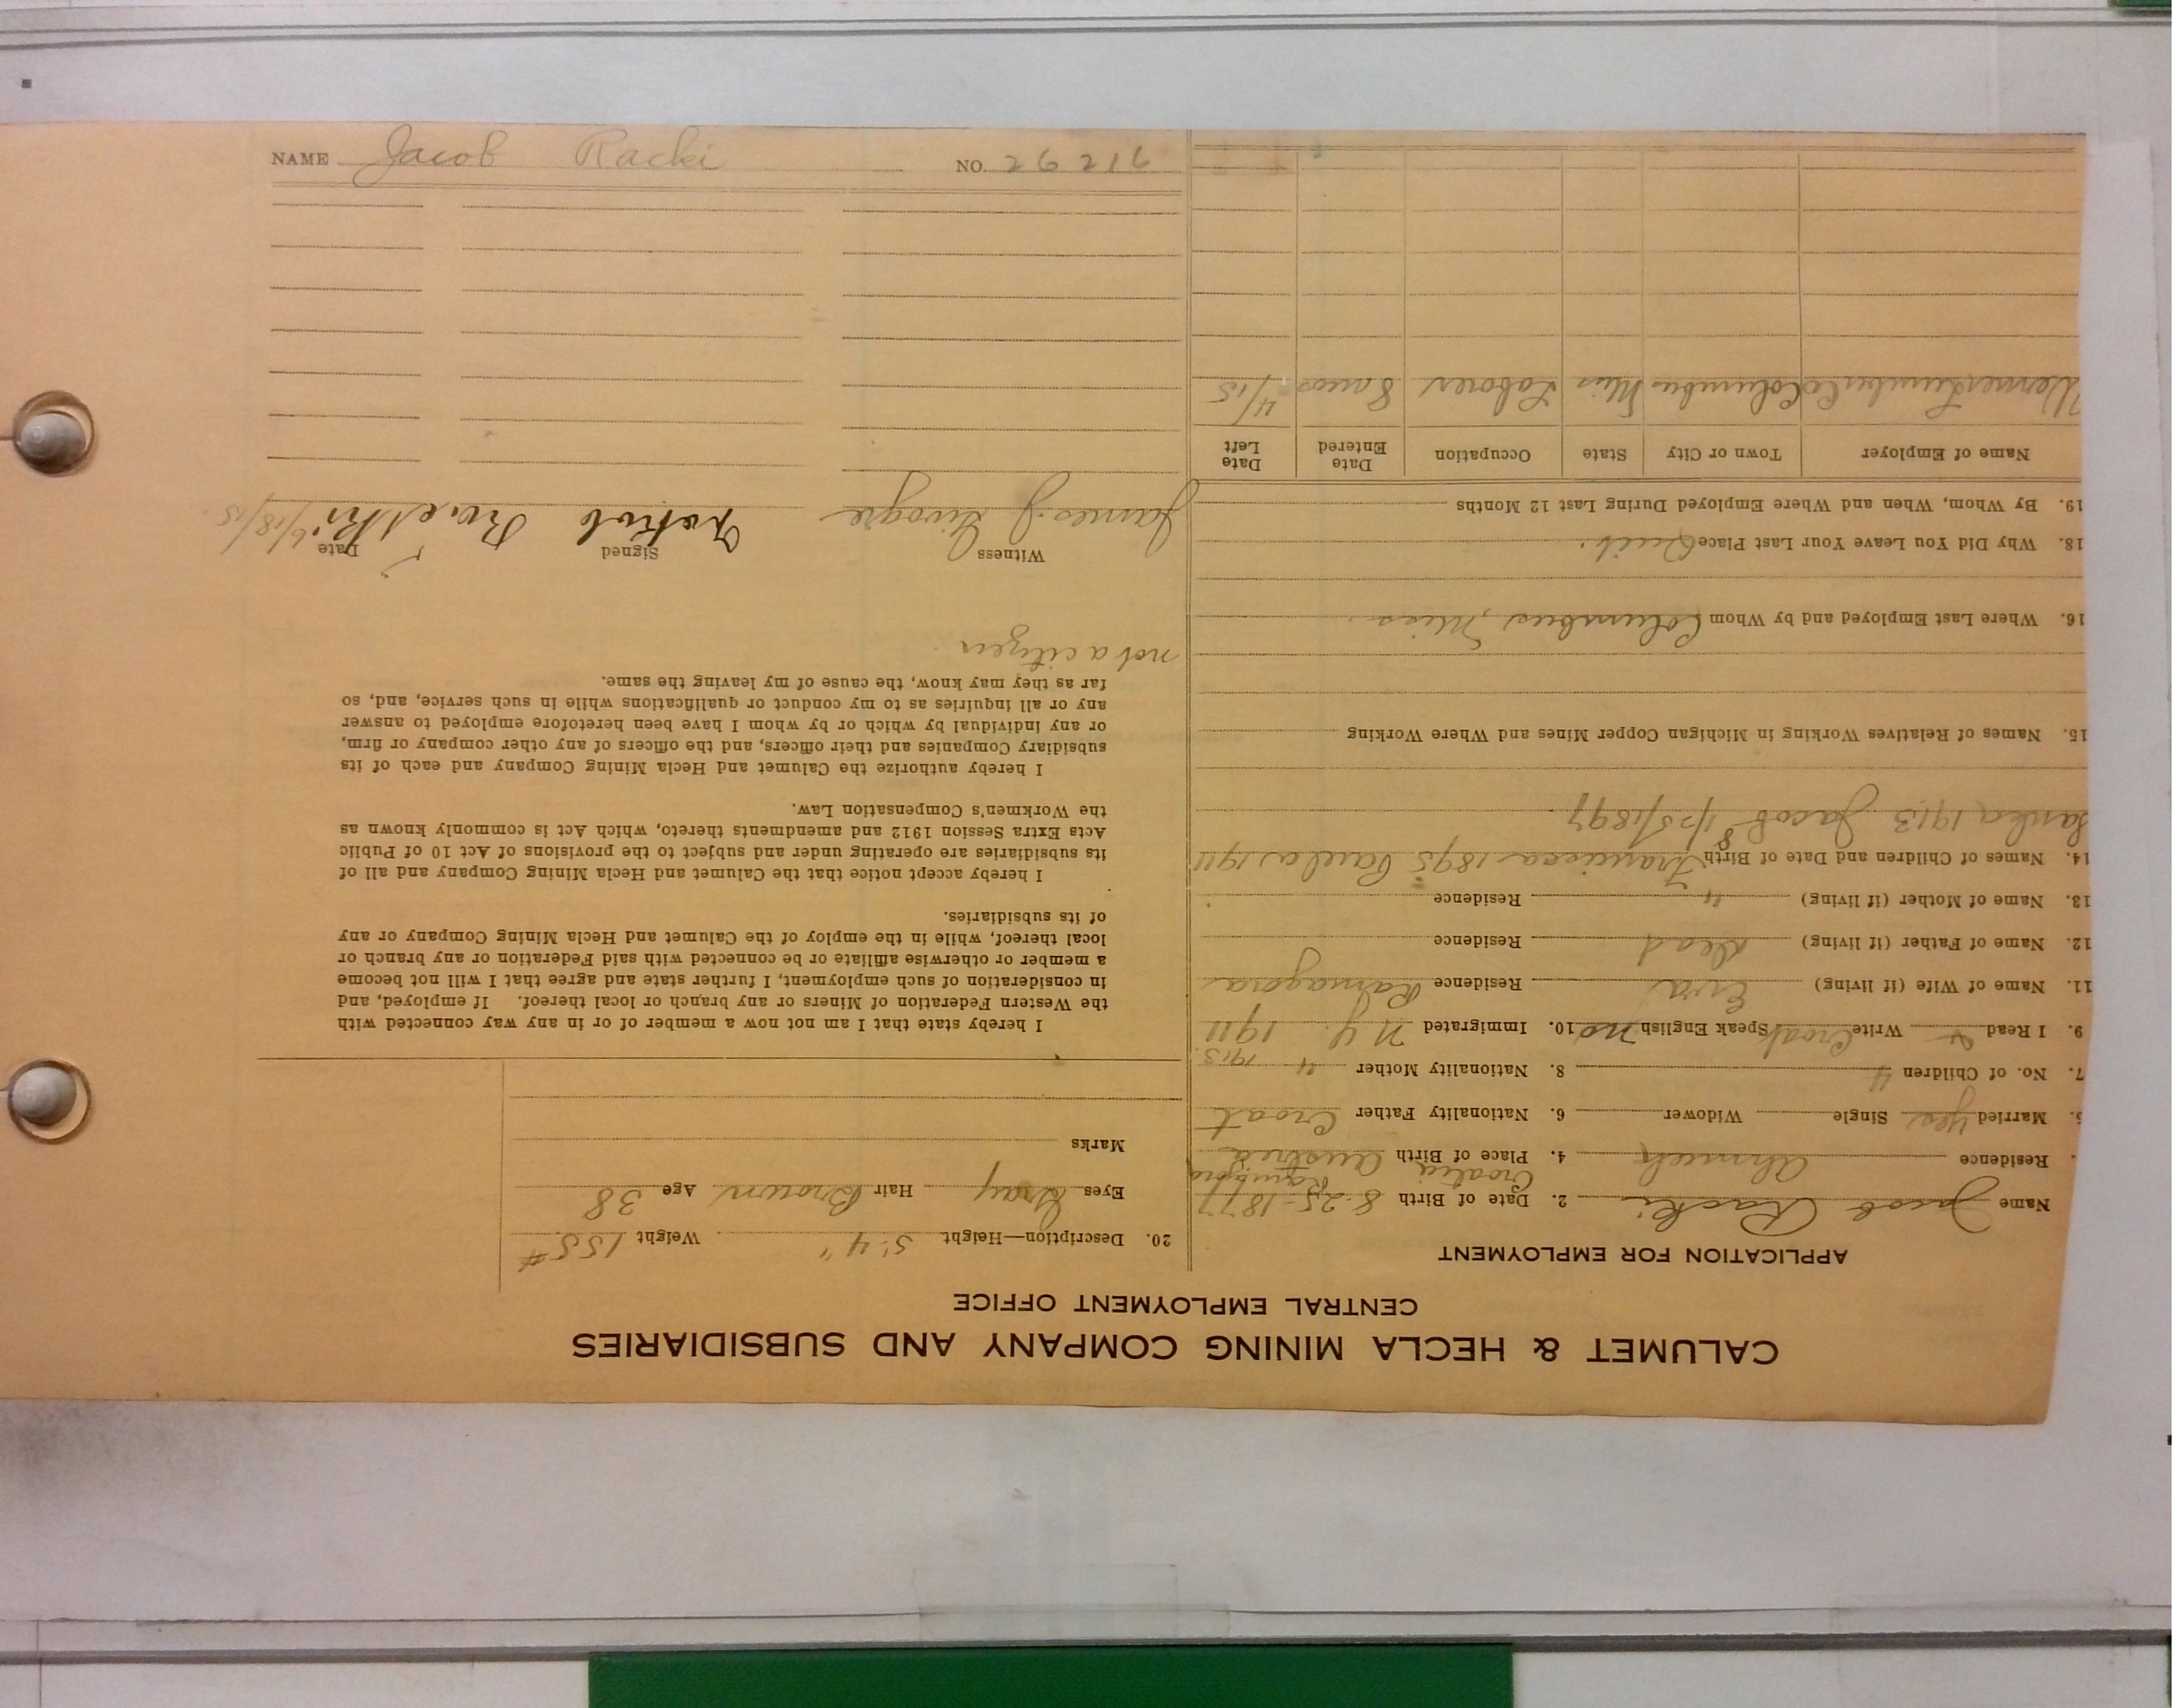 NAME Jacob Racki NO. 29216
CALUMET & HECLA MINING COMPANY AND SUBSIDIARIES
CENTRAL EMPLOYMENT OFFICE
APPLICATION FOR EMPLOYMENT
Name Jacob Racki 2. Date of Birth 8-25-1877
Croatia
Residence Ahmeek 4. Place of Birth Austria
Married yes Single Widower 6. Nationality Father Croat
7. No. of Children 4 8. Nationality Mother " 1913
9. I Read Write Croat Speak English no 10. Immigrated N.Y. 1911
11. Name of Wife (if living) Eva Residence Ramagora
12. Name of Father (if living) dead Residence
13. Name of Mother (if living) " Residence
14. Names of Children and Date of Birth Francisca 1895 Paula 1911
1913 Jacob 1/25/1897
15. Names of Relatives Working in Michigan Copper Mines and Where Working
16. Where Last Employed and by Whom Columbus, Miss
18. Why Did You Leave Your Last Place Quit.
19. By Whom, When and Where Employed During Last 12 Months
Name of Employer Town or City State Occupation Date Entered Date Left
Lumber Co Columbus Miss Laborer 8 mos 4/15
20. Description—Height 5' 4" Weight 155#
Eyes Gray Hair Brown Age 38
Marks
I hereby state that I am not now a member of or in any way connected with
the Western Federation of Miners or any branch or local thereof. If employed, and
in consideration of such employment, I further state and agree that I will not become
a member or otherwise affiliate or be connected with said Federation or any branch or
local thereof, while in the employ of the Calumet and Hecla Mining Company or any
of its subsidiaries.
I hereby accept notice that the Calumet and Hecla Mining Company and all of
its subsidiaries are operating under and subject to the provisions of Act 10 of Public
Acts Extra Session 1912 and amendments thereto, which Act is commonly known as
the Workmen's Compensation Law.
I hereby authorize the Calumet and Hecla Mining Company and each of its
subsidiary Companies and their officers, and the officers of any other company or firm,
or any individual by which or by whom I have been heretofore employed to answer
any or all inquiries as to my conduct or qualifications while in such service, and, so
far as they may know, the cause of my leaving the same.
not a citizen
Witness Signed Date
James J. 6/18/15